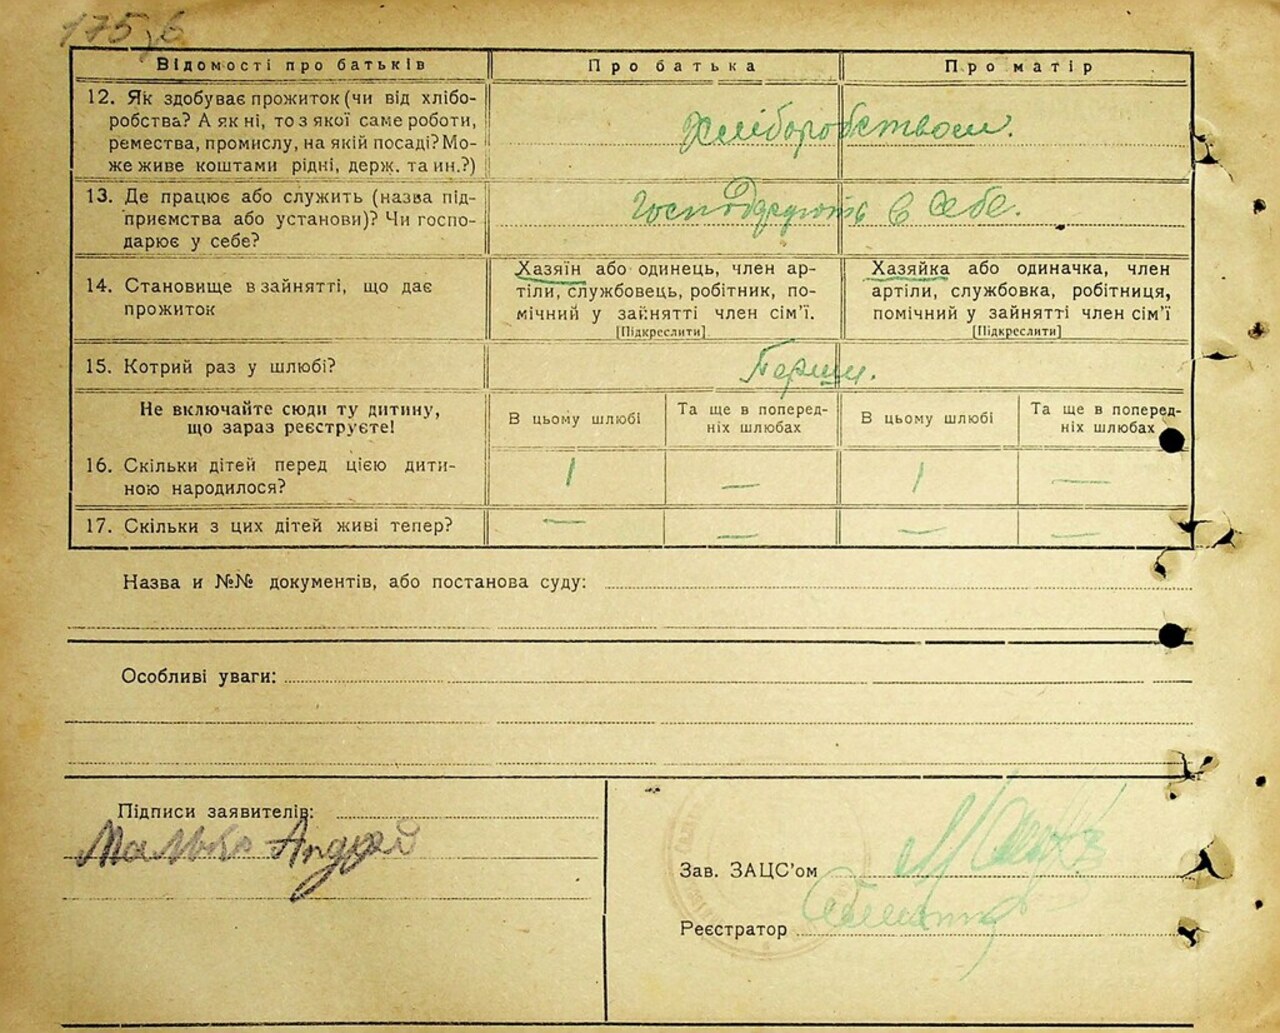 175зб
Відомості про батьків Про батька Про матір
12. Як здобуває прожиток (чи від хлібо-
робства? А як ні, то з якої саме роботи,
ремества, промислу, на якій посаді? Мо-
же живе коштами рідні, держ. та ин.?)
Хліборобством.
13. Де працює або служить (назва під-
приємства або установи)? Чи госпо-
дарює у себе?
господарють в себе.
14. Становище в зайнятті, що дає
прожиток
Хазяїн або одинець, член ар-
тіли, службовець, робітник, по-
мічний у зайнятті член сім'ї.
[Підкреслити]
Хазяйка або одиначка, член
артіли, службовка, робітниця,
помічний у зайнятті член сім'ї
[Підкреслити]
15. Котрий раз у шлюбі?
Перши.
Не включайте сюди ту дитину,
що зараз реєструєте!
В цьому шлюбі
Та ще в поперед-
ніх шлюбах
В цьому шлюбі
Та ще в поперед-
ніх шлюбах
16. Скільки дітей перед цією дити-
ною народилося?
1 — 1 —
17. Скільки з цих дітей живі тепер?
— — — —
Назва и №№ документів, або постанова суду:
Особливі уваги:
Підписи заявителів:
Малько Андрей
Зав. ЗАЦС'ом
Реєстратор